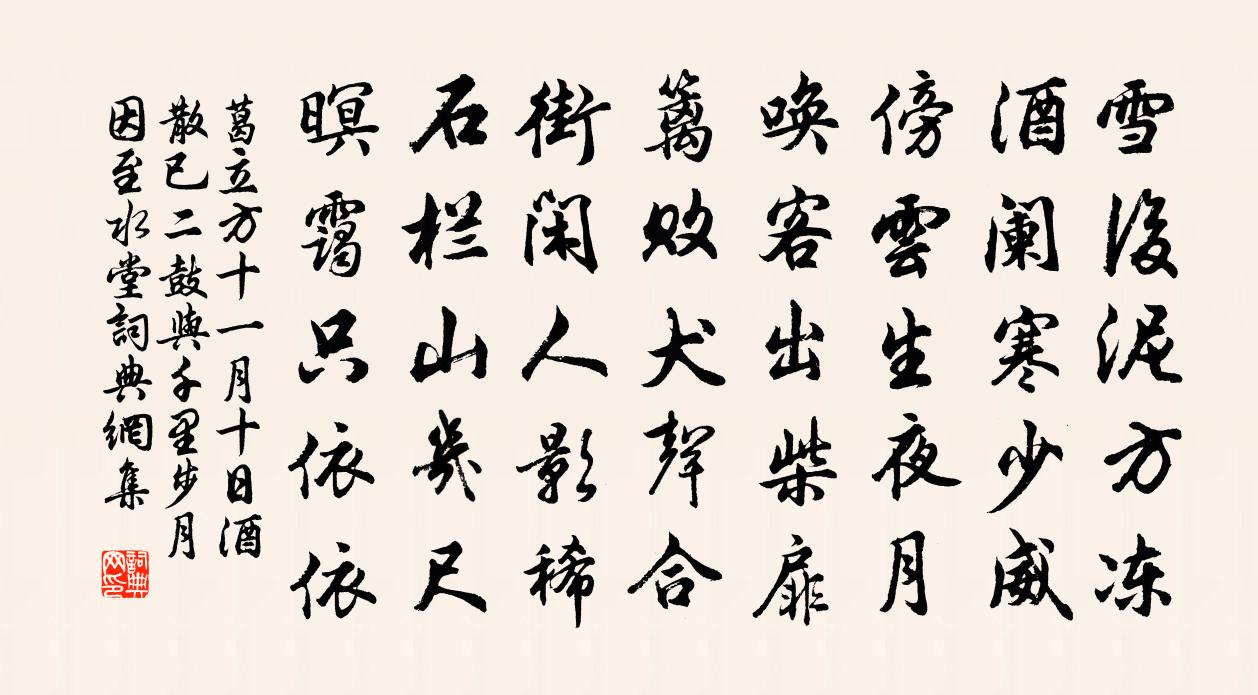 雪後泥方冻
酒阑寒少威
傍雲生夜月
唤客出柴扉
篱败犬聲合
街閑人影稀
石栏山幾尺
暝靄只依依
葛立方十一月十日酒
散已二鼓與千里步月
因至水堂詞典網集
詞典
网印